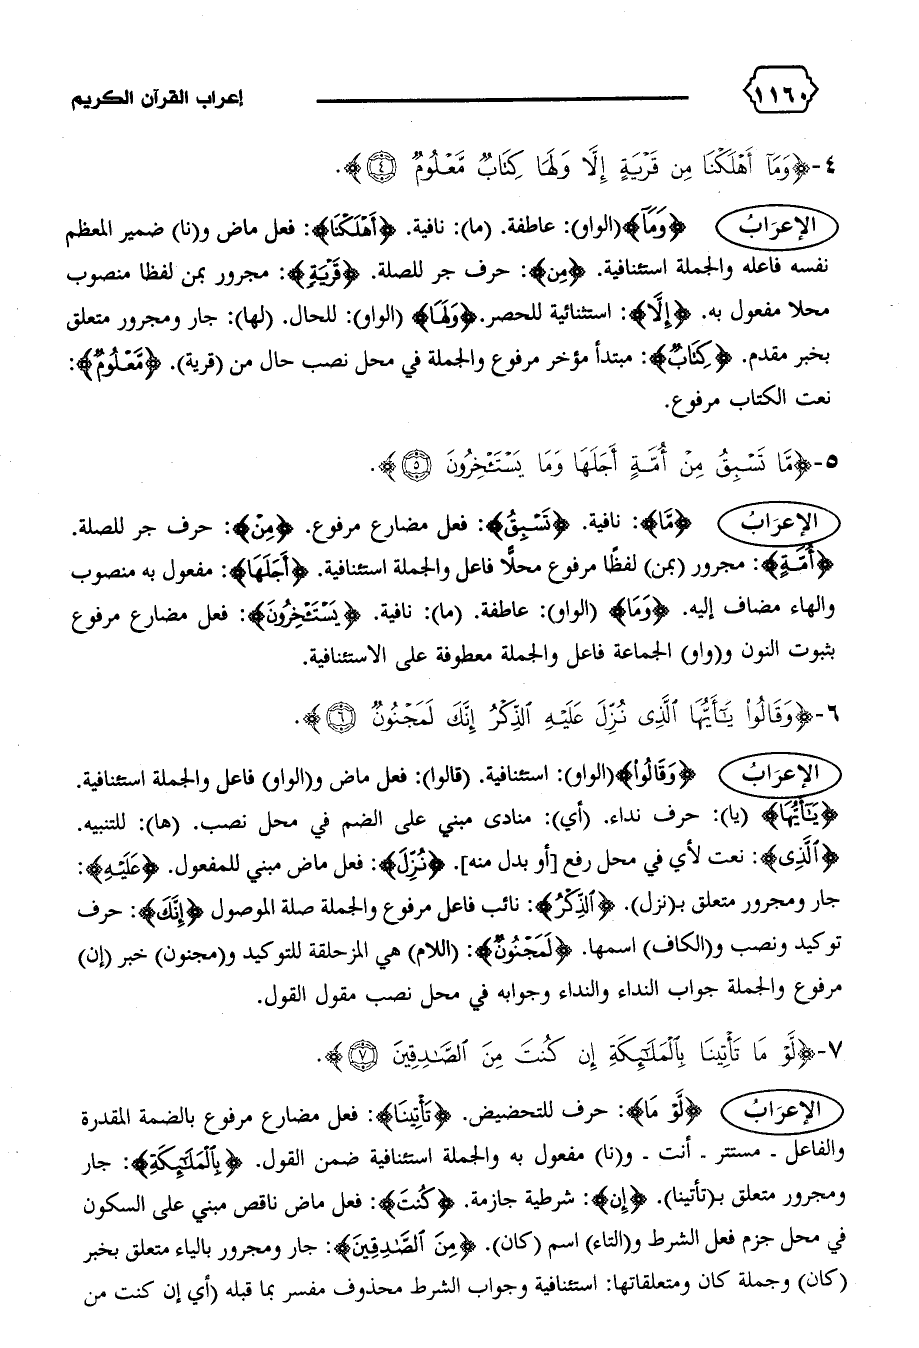 ١١٦٠ إعراب القرآن الكريم
٤-﴿وَمَآ أَهْلَكْنَا مِن قَرْيَةٍ إِلَّا وَلَهَا كِتَابٌ مَّعْلُومٌ ٤﴾.
الإعرَابُ ﴿وَمَآ﴾(الواو): عاطفة. (ما): نافية. ﴿أَهْلَكْنَا﴾: فعل ماض و(نا) ضمير المعظم
نفسه فاعله والجملة استئنافية. ﴿مِن﴾: حرف جر للصلة. ﴿قَرْيَةٍ﴾: مجرور بمن لفظا منصوب
محلا مفعول به. ﴿إِلَّا﴾: استثنائية للحصر.﴿وَلَهَا﴾ (الواو): للحال. (لها): جار ومجرور متعلق
بخبر مقدم. ﴿كِتَابٌ﴾: مبتدأ مؤخر مرفوع والجملة في محل نصب حال من (قرية). ﴿مَّعْلُومٌ﴾:
نعت الكتاب مرفوع.
٥-﴿مَّا تَسْبِقُ مِنْ أُمَّةٍ أَجَلَهَا وَمَا يَسْتَـْٔخِرُونَ ٥﴾.
الإعرَابُ ﴿مَّا﴾: نافية. ﴿تَسْبِقُ﴾: فعل مضارع مرفوع. ﴿مِنْ﴾: حرف جر للصلة.
﴿أُمَّةٍ﴾: مجرور (بمن) لفظًا مرفوع محلًّا فاعل والجملة استئنافية. ﴿أَجَلَهَا﴾: مفعول به منصوب
والهاء مضاف إليه. ﴿وَمَا﴾ (الواو): عاطفة. (ما): نافية. ﴿يَسْتَـْٔخِرُونَ﴾: فعل مضارع مرفوع
بثبوت النون و(واو) الجماعة فاعل والجملة معطوفة على الاستئنافية.
٦-﴿وَقَالُوا۟ يَـٰٓأَيُّهَا ٱلَّذِى نُزِّلَ عَلَيْهِ ٱلذِّكْرُ إِنَّكَ لَمَجْنُونٌ ٦﴾.
الإعرَابُ ﴿وَقَالُوا۟﴾(الواو): استئنافية. (قالوا): فعل ماض و(الواو) فاعل والجملة استئنافية.
﴿يَـٰٓأَيُّهَا﴾ (يا): حرف نداء. (أي): منادى مبني على الضم في محل نصب. (ها): للتنبيه.
﴿ٱلَّذِى﴾: نعت لأي في محل رفع [أو بدل منه]. ﴿نُزِّلَ﴾: فعل ماض مبني للمفعول. ﴿عَلَيْهِ﴾:
جار ومجرور متعلق بـ(نزل). ﴿ٱلذِّكْرُ﴾: نائب فاعل مرفوع والجملة صلة الموصول ﴿إِنَّكَ﴾: حرف
توكيد ونصب و(الكاف) اسمها. ﴿لَمَجْنُونٌ﴾: (اللام) هي المزحلقة للتوكيد و(مجنون) خبر (إن)
مرفوع والجملة جواب النداء والنداء وجوابه في محل نصب مقول القول.
٧-﴿لَّوْ مَا تَأْتِينَا بِٱلْمَلَـٰٓئِكَةِ إِن كُنتَ مِنَ ٱلصَّـٰدِقِينَ ٧﴾.
الإعرَابُ ﴿لَّوْ مَا﴾: حرف للتحضيض. ﴿تَأْتِينَا﴾: فعل مضارع مرفوع بالضمة المقدرة
والفاعل ـ مستتر ـ أنت ـ و(نا) مفعول به والجملة استئنافية ضمن القول. ﴿بِٱلْمَلَـٰٓئِكَةِ﴾: جار
ومجرور متعلق بـ(تأتينا). ﴿إِن﴾: شرطية جازمة. ﴿كُنتَ﴾: فعل ماض ناقص مبني على السكون
في محل جزم فعل الشرط و(التاء) اسم (كان). ﴿مِنَ ٱلصَّـٰدِقِينَ﴾: جار ومجرور بالياء متعلق بخبر
(كان) وجملة كان ومتعلقاتها: استئنافية وجواب الشرط محذوف مفسر بما قبله (أي إن كنت من